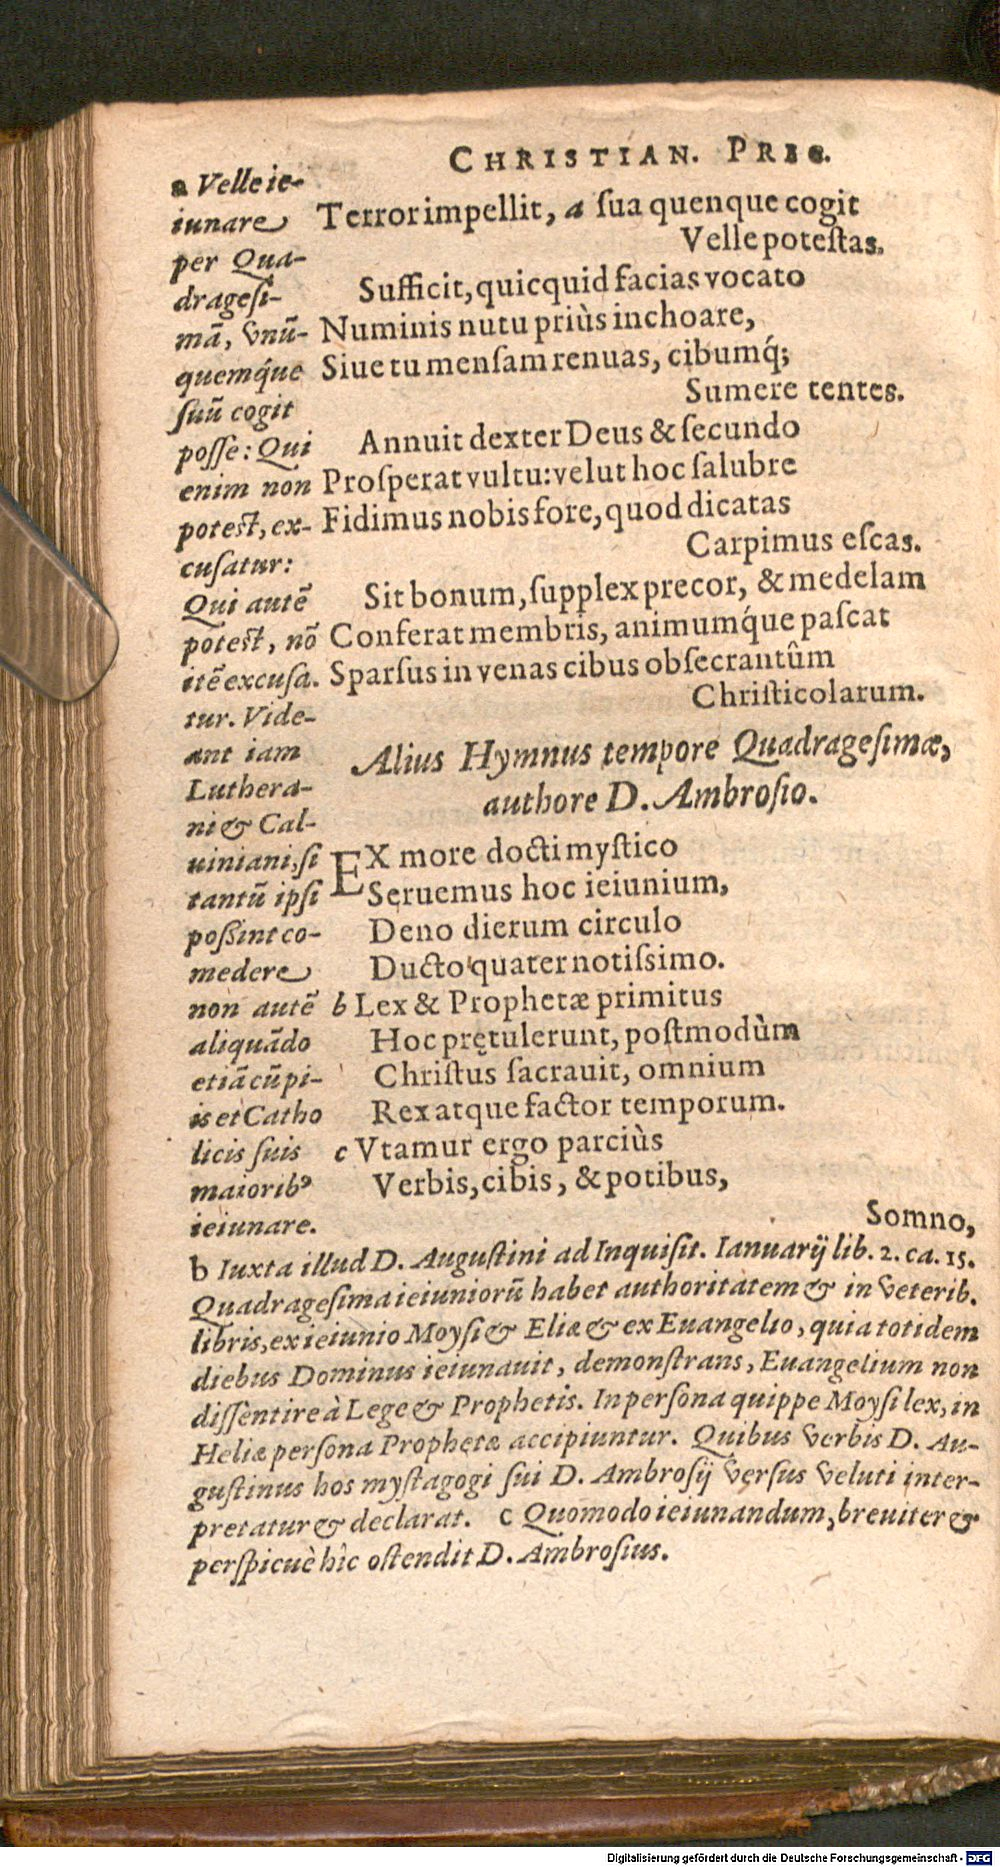 CHRISTIAN. PREC.
Terror impellit, a ſua quenque cogit
Velle poteſtas.
Sufficit, quicquid facias vocato
Numinis nutu priùs inchoare,
Siue tu menſam renuas, cibumq́;
Sumere tentes.
Annuit dexter Deus & ſecundo
Proſperat vultu: velut hoc ſalubre
Fidimus nobis fore, quod dicatas
Carpimus eſcas.
Sit bonum, ſupplex precor, & medelam
Conferat membris, animumq́ue paſcat
Sparſus in venas cibus obſecrantûm
Chriſticolarum.
Alius Hymnus tempore Quadrageſimæ,
authore D. Ambroſio.
EX more docti myſtico
Seruemus hoc ieiunium,
Deno dierum circulo
Ducto quater notiſsimo.
b Lex & Prophetæ primitus
Hoc prętulerunt, poſtmodùm
Chriſtus ſacrauit, omnium
Rex atque factor temporum.
c Vtamur ergo parciùs
Verbis, cibis, & potibus,
Somno,
a Velle ie-
iunare
per Qua-
drageſi-
mā, vnū-
quemq́ue
ſuū cogit
poſſe: Qui
enim non
poteſt, ex-
cuſatur:
Qui autē
poteſt, nō
itē excuſa-
tur. Vide-
ant iam
Luthera-
ni & Cal-
uiniani, ſi
tantū ipſi
poßint co-
medere
non autē
aliquādo
etiā cū pi-
is et Catho
licis ſuis
maioribꝰ
ieiunare.
b Iuxta illud D. Auguſtini ad Inquiſit. Ianuarij lib. 2. ca. 15.
Quadrageſima ieiuniorū habet authoritatem & in veterib.
libris, ex ieiunio Moyſi & Eliæ & ex Euangelio, quia totidem
diebus Dominus ieiunauit, demonſtrans, Euangelium non
diſſentire à Lege & Prophetis. In perſona quippe Moyſi lex, in
Heliæ perſona Prophetæ accipiuntur. Quibus verbis D. Au-
guſtinus hos myſtagogi ſui D. Ambroſij verſus veluti inter-
pretatur & declarat. c Quomodo ieiunandum, breuiter &
perſpicuè hîc oſtendit D. Ambroſius.
Digitalisierung gefördert durch die Deutsche Forschungsgemeinschaft - DFG